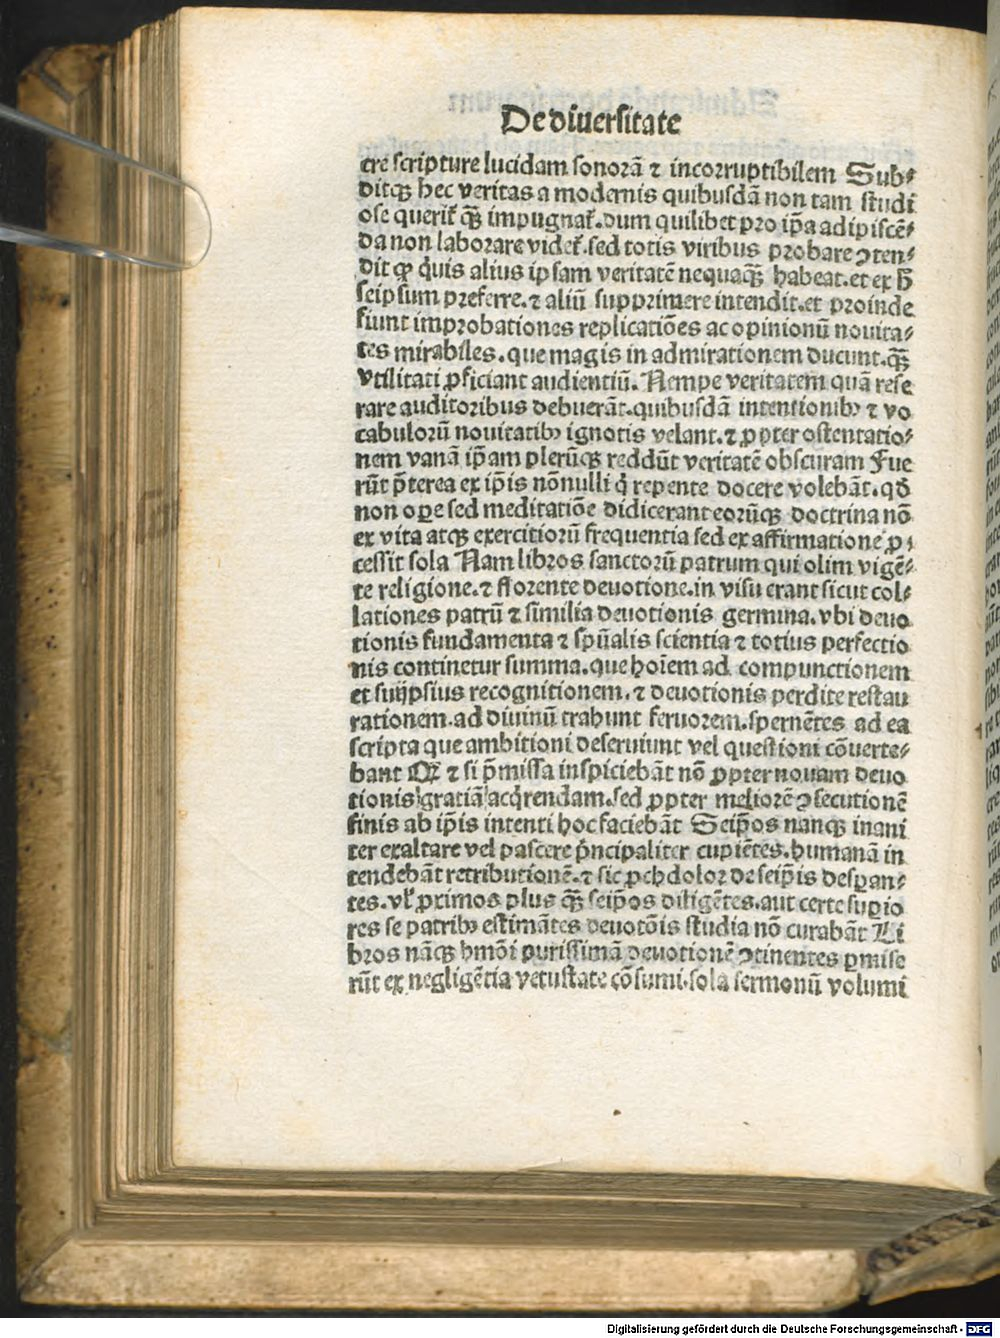 De diuersitate
cre scripture lucidam sonorā ⁊ incorruptibilem Sub⸗
ditqꝫ hec veritas a modernis quibusdā non tam studi
ose querit᷑ qꝫ̄ impugnat᷑. dum quilibet pro ip̄a adipiscē⸗
da non laborare videt᷑. sed totis viribus probare ꝯten⸗
dit ꝙ q̇uis alius ipsam veritatē nequaqꝫ̄ habeat. et ex h̄
seipsum preferre. ⁊ aliū supprimere intendit. et proinde
fiunt improbationes replicatiōes ac opinionū nouita⸗
tes mirabiles. que magis in admirationem ducunt. qꝫ̄
vtilitati ꝓficiant audientiū. Nempe veritatem quā rese
rare auditoribus debuerāt. quibusdā intentionibꝫ ⁊ vo
cabulorū nouitatibꝫ ignotis velant. ⁊ ꝓpter ostentatio⸗
nem vanā ip̄am plerūqꝫ reddūt veritatē obscuram Fue
rūt p̄terea ex ip̄is nōnulli q̇ repente docere volebāt. qd̄
non oꝑe sed meditatiōe didicerant eorūqꝫ doctrina nō
ex vita atqꝫ exercitiorū frequentia sed ex affirmatione ꝓ⸗
cessit sola Nam libros sanctorū patrum qui olim vigē⸗
te religione. ⁊ florente deuotione. in visu erant sicut col⸗
lationes patrū ⁊ similia deuotionis germina. vbi deuo
tionis fundamenta ⁊ spūalis scientia ⁊ totius perfectio
nis continetur summa. que hoīem ad compunctionem
et suijpsius recognitionem. ⁊ deuotionis perdite restau
rationem. ad diuinū trahunt feruorem. spernētes ad ea
scripta que ambitioni deseruiunt vel questioni cōuerte⸗
bant Qꝛ ⁊ si p̄missa inspiciebāt nō ꝓpter nouam deuo
tionis gratiā acq̇rendam. sed ꝓpter meliorē ꝯsecutionē
finis ab ip̄is intenti hoc faciebāt Seip̄os nanqꝫ inani
ter exaltare vel pascere ṗncipaliter cupiētes. humanā in
tendebāt retributionē. ⁊ sic ꝓch dolor de seip̄is desꝑan⸗
tes. vł ꝓximos plus qꝫ̄ seip̄os diligētes. aut certe suꝑio
res se patribꝫ estimātes deuotōis studia nō curabāt Li
bros nāqꝫ hmōi purissimā deuotionē ꝯtinentes ꝑmise
rūt ex negligētia vetustate cōsumi. sola sermonū volumi
Digitalisierung gefördert durch die Deutsche Forschungsgemeinschaft - DFG